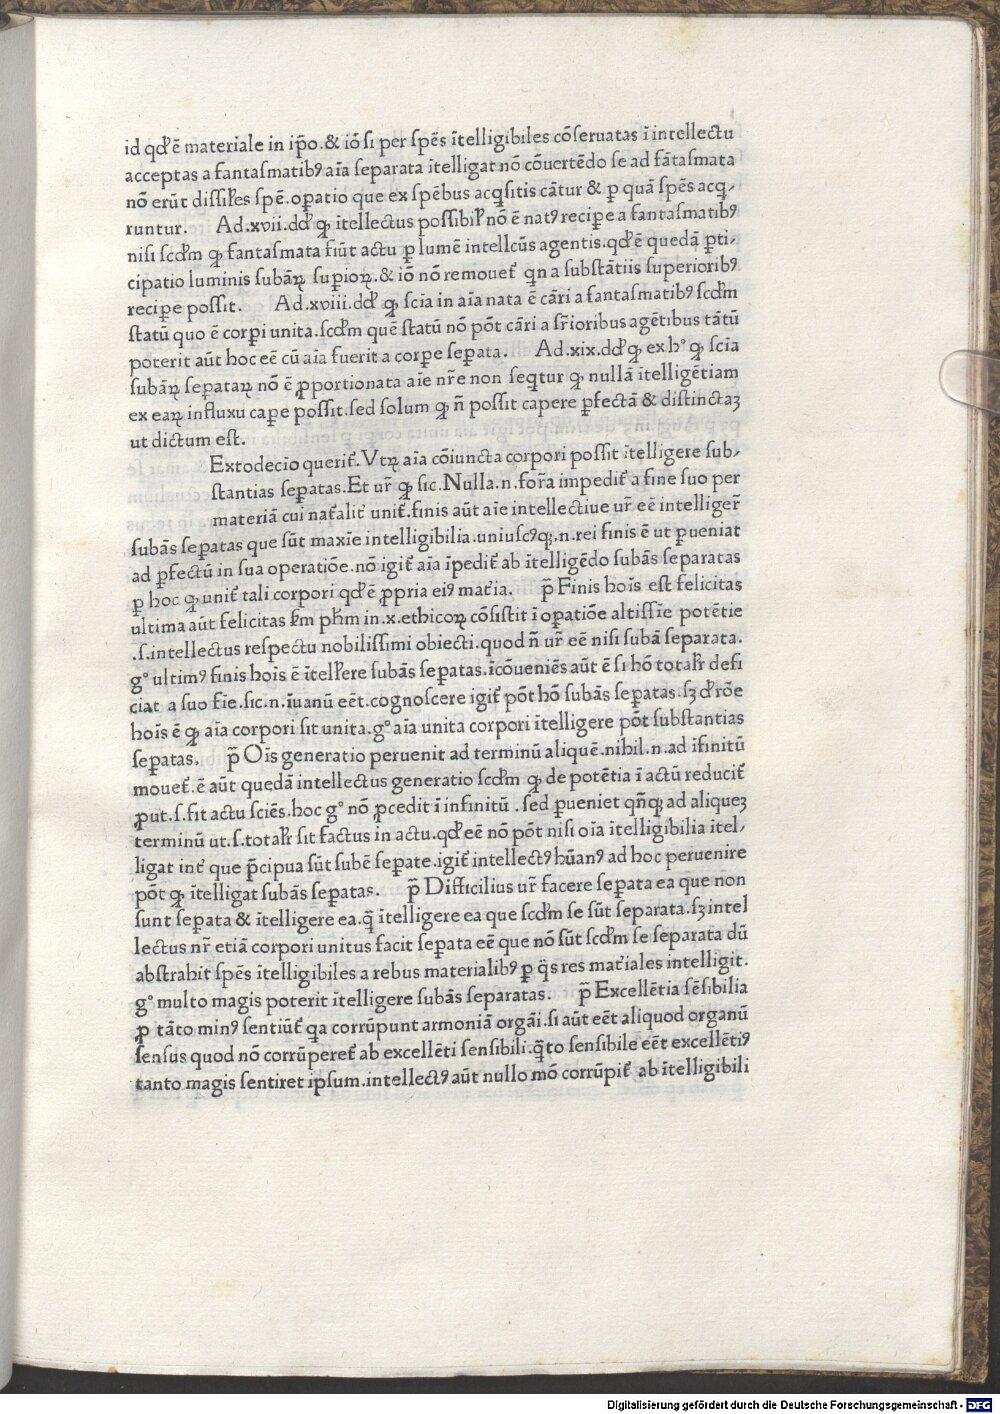 id qđ ē materiale in ip̄o.& iō si per sp̄es ītelligibiles cōseruatas ī intellectu
acceptas a fantasmatibꝰ aīa separata ītelligat nō cōuertēdo se ad fātasmata
nō erūt dissil̄es spē.oꝑatio que ex spēbus acq̄sitis cātur & ꝑ quā spēs acq̄-
runtur. Ad.xvii.dđ ꝙ ītellectus possibil̄ nō ē natꝰ reciꝑe a fantasmatibꝰ
nisi scđm ꝙ fantasmata fiūt actu ꝑ lumē intellcūs agentis.qđ ē quedā ꝑti-
cipatio luminis subāꝝ suꝑioꝝ.& iō nō remouet̄ qn a substātiis superioribꝰ
reciꝑe possit. Ad.xviii.dđ ꝙ scīa in aīa nata ē cāri a fantasmatibꝰ scđm
statū quo ē corꝑi unita.scđm quē statū nō pōt cāri a sr̄ioribus agētibus tātū
poterit aūt hoc eē cū aīa fuerit a corꝑe seꝑata. Ad.xix.dđ ꝙ ex h° ꝙ scīa
subāꝝ seꝑataꝝ nō ē ꝓportionata aīe nr̄e non seq̄tur ꝙ nullā ītelligētiam
ex eaꝝ influxu caꝑe possit.sed solum ꝙ n̄ possit capere ꝑfectā & distinctaꝫ
ut dictum est.
Extodecio querit̄.Vtꝝ aīa cōiuncta corpori possit ītelligere sub-
stantias seꝑatas.Et ur̄ ꝙ sic.Nulla.n.for̄a impedit̄ a fine suo per
materiā cui nat̄alit̄ unit̄.finis aūt aīe intellectiue ur̄ eē intelliger̄
subās seꝑatas que sūt maxīe intelligibilia.uniuscꝰqꝫ.n.rei finis ē ut ꝑueniat
ad ꝑfectū in sua operatiōe.nō igit̄ aīa īpedit̄ ab ītelligēdo subās separatas
ꝑ hoc ꝙ unit̄ tali corpori qđ ē ꝓpria eiꝰ mat̄ia. p̄ Finis hoīs est felicitas
ultima aūt felicitas ẜm ph̄m in.x.ethicoꝝ cōsistit ī oꝑatiōe altissīe potētie
.s.intellectus respectu nobilissimi obiecti.quod n̄ ur̄ eē nisi subā seꝑarata.
g° ultimꝰ finis hoīs ē ītell̄ere subās seꝑatas.īcōueniēs aūt ē si hō total̄r defi
ciat a suo fīe.sic.n.iuanū eēt.cognoscere igit̄ pōt hō subās seꝑatas.sꝫ đ rōe
hoīs ē ꝙ aīa corpori sit unita.g° aīa unita corpori ītelligere pōt substantias
seꝑatas. p̄ Oīs generatio peruenit ad terminū aliquē.nihil.n.ad īfinitū
mouet̄.ē aūt quedā intellectus generatio scđm ꝙ de potētia ī actū reducit̄
ꝓut.s.fit actu sciēs.hoc g° nō ꝓcedit ī infinitū .sed ꝑueniet qn̄qꝫ ad aliqueꝫ
terminū ut.s.total̄r sit factus in actu.qđ eē nō pōt nisi oīa ītelligibilia itel-
ligat int̄ que p̄cipua sūt subē seꝑate.igit̄ intellectꝰ hūanꝰ ad hoc peruenire
pōt ꝙ ītelligat subās seꝑatas. p̄ Difficilius ur̄ facere seꝑata ea que non
sunt seꝑata & ītelligere ea.q̄ ītelligere ea que scđm se sūt seꝑarata.sꝫ intel
lectus nr̄ etiā corpori unitus facit seꝑata eē que nō sūt scđm se separata dū
abstrahit spēs ītelligibiles a rebus materialibꝰ ꝑ q̄s res mat̄iales intelligit.
g° multo magis poterit ītelligere subās separatas. p̄ Excellētia sēsibilia
ꝓ tāto minꝰ sentiūt̄ qa corrūpunt armoniā orgāi.si aūt eēt aliquod organū
sensus quod nō corrūperet̄ ab excellēti sensibili.q̄to sensibile eēt excellētiꝰ
tanto magis sentiret ipsum.intellectꝰ aūt nullo mō corrūpit̄ ab ītelligibili
Digitalisierung gefördert durch die Deutsche Forschungsgemeinschaft - DFG